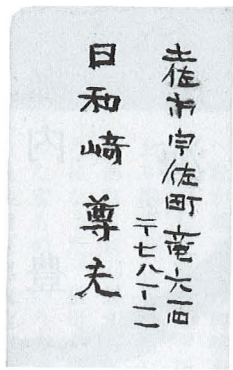 土佐市宇佐町竜六一四
〒七八一-一一
日和﨑 尊夫